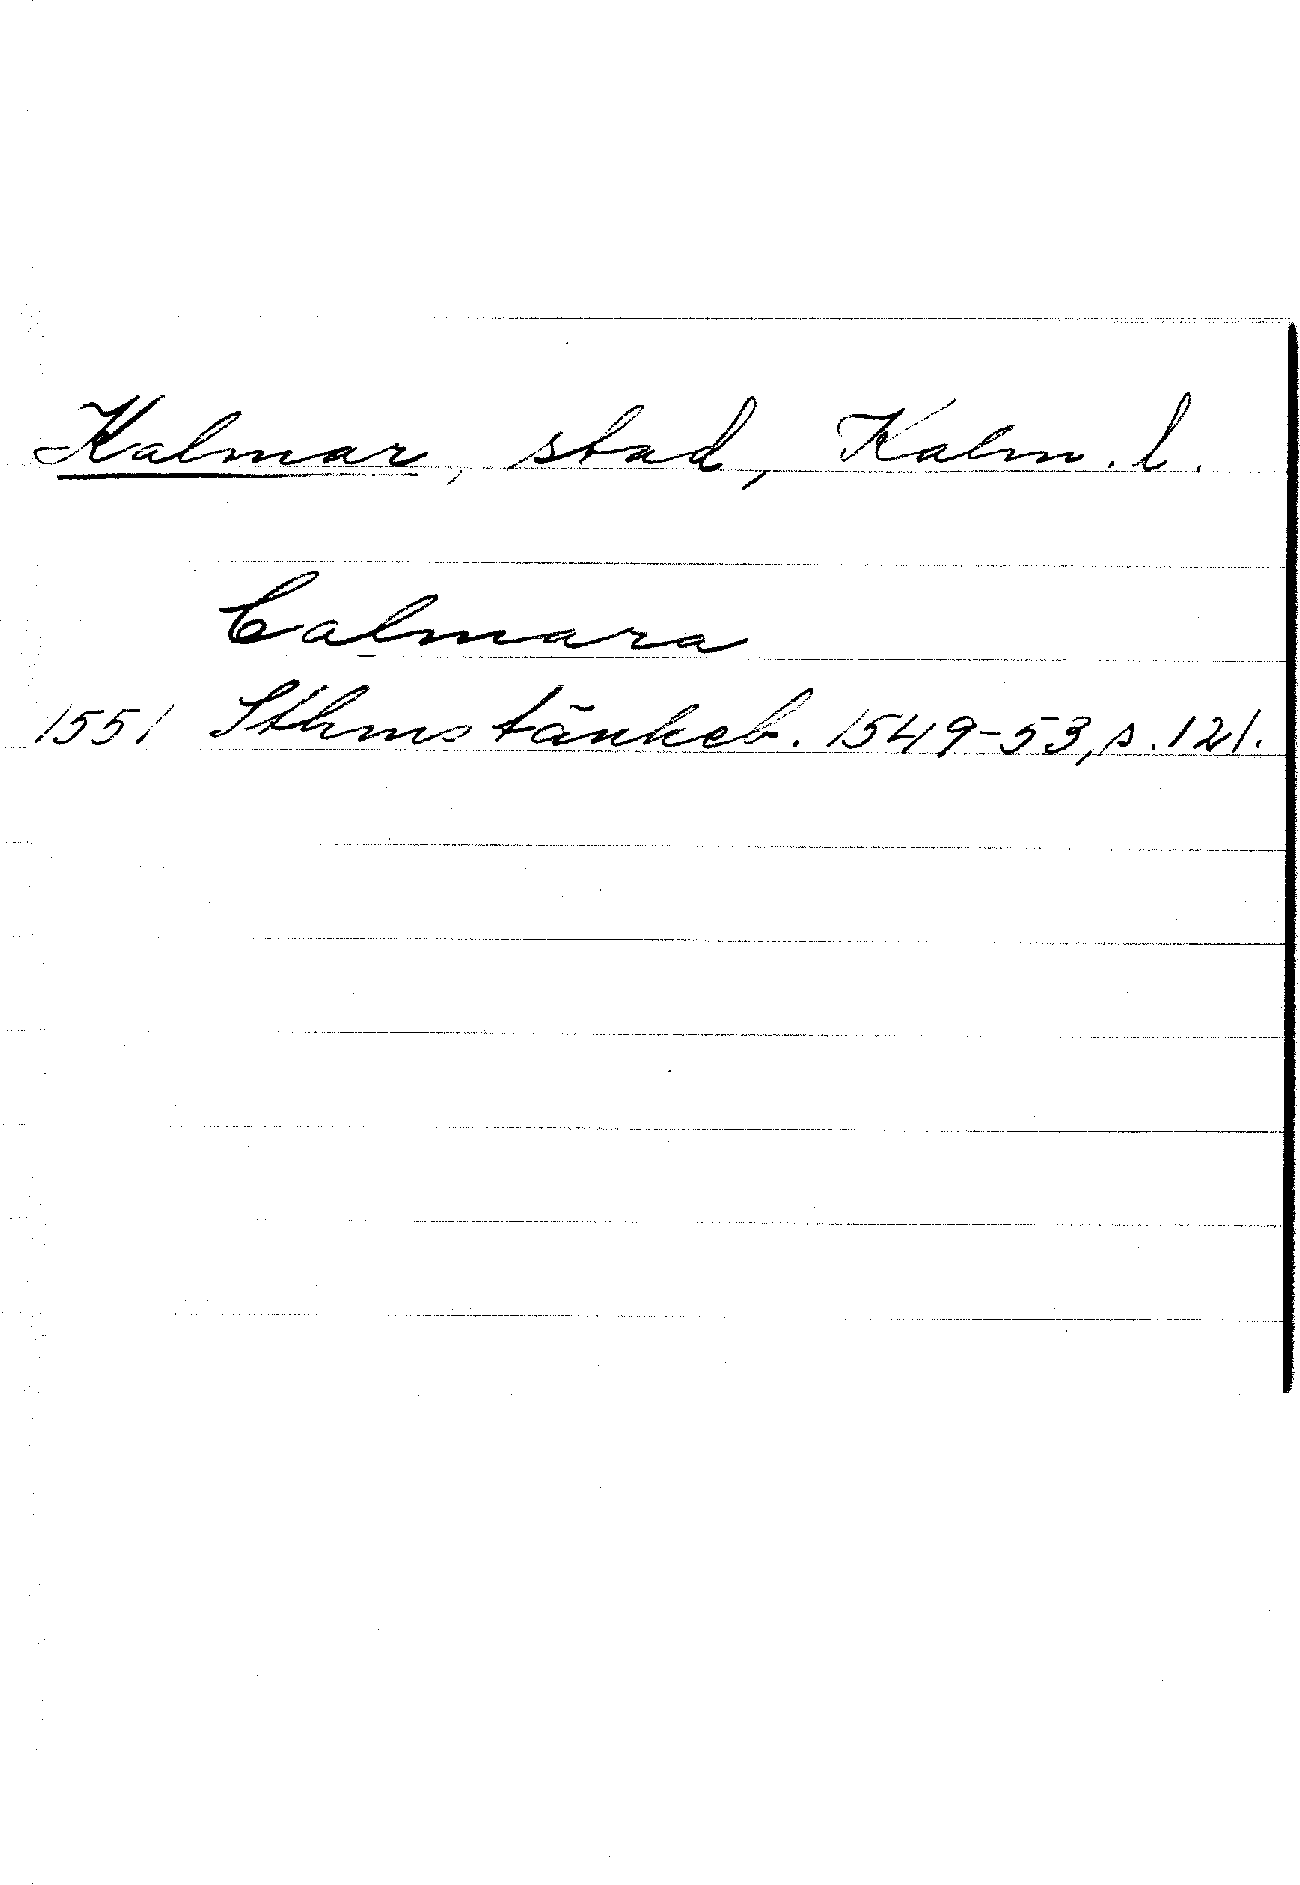 Kalmar, stad, Kalm. l.
Calmara
1551 Sthms tänkeb. 1549-53, s. 121.